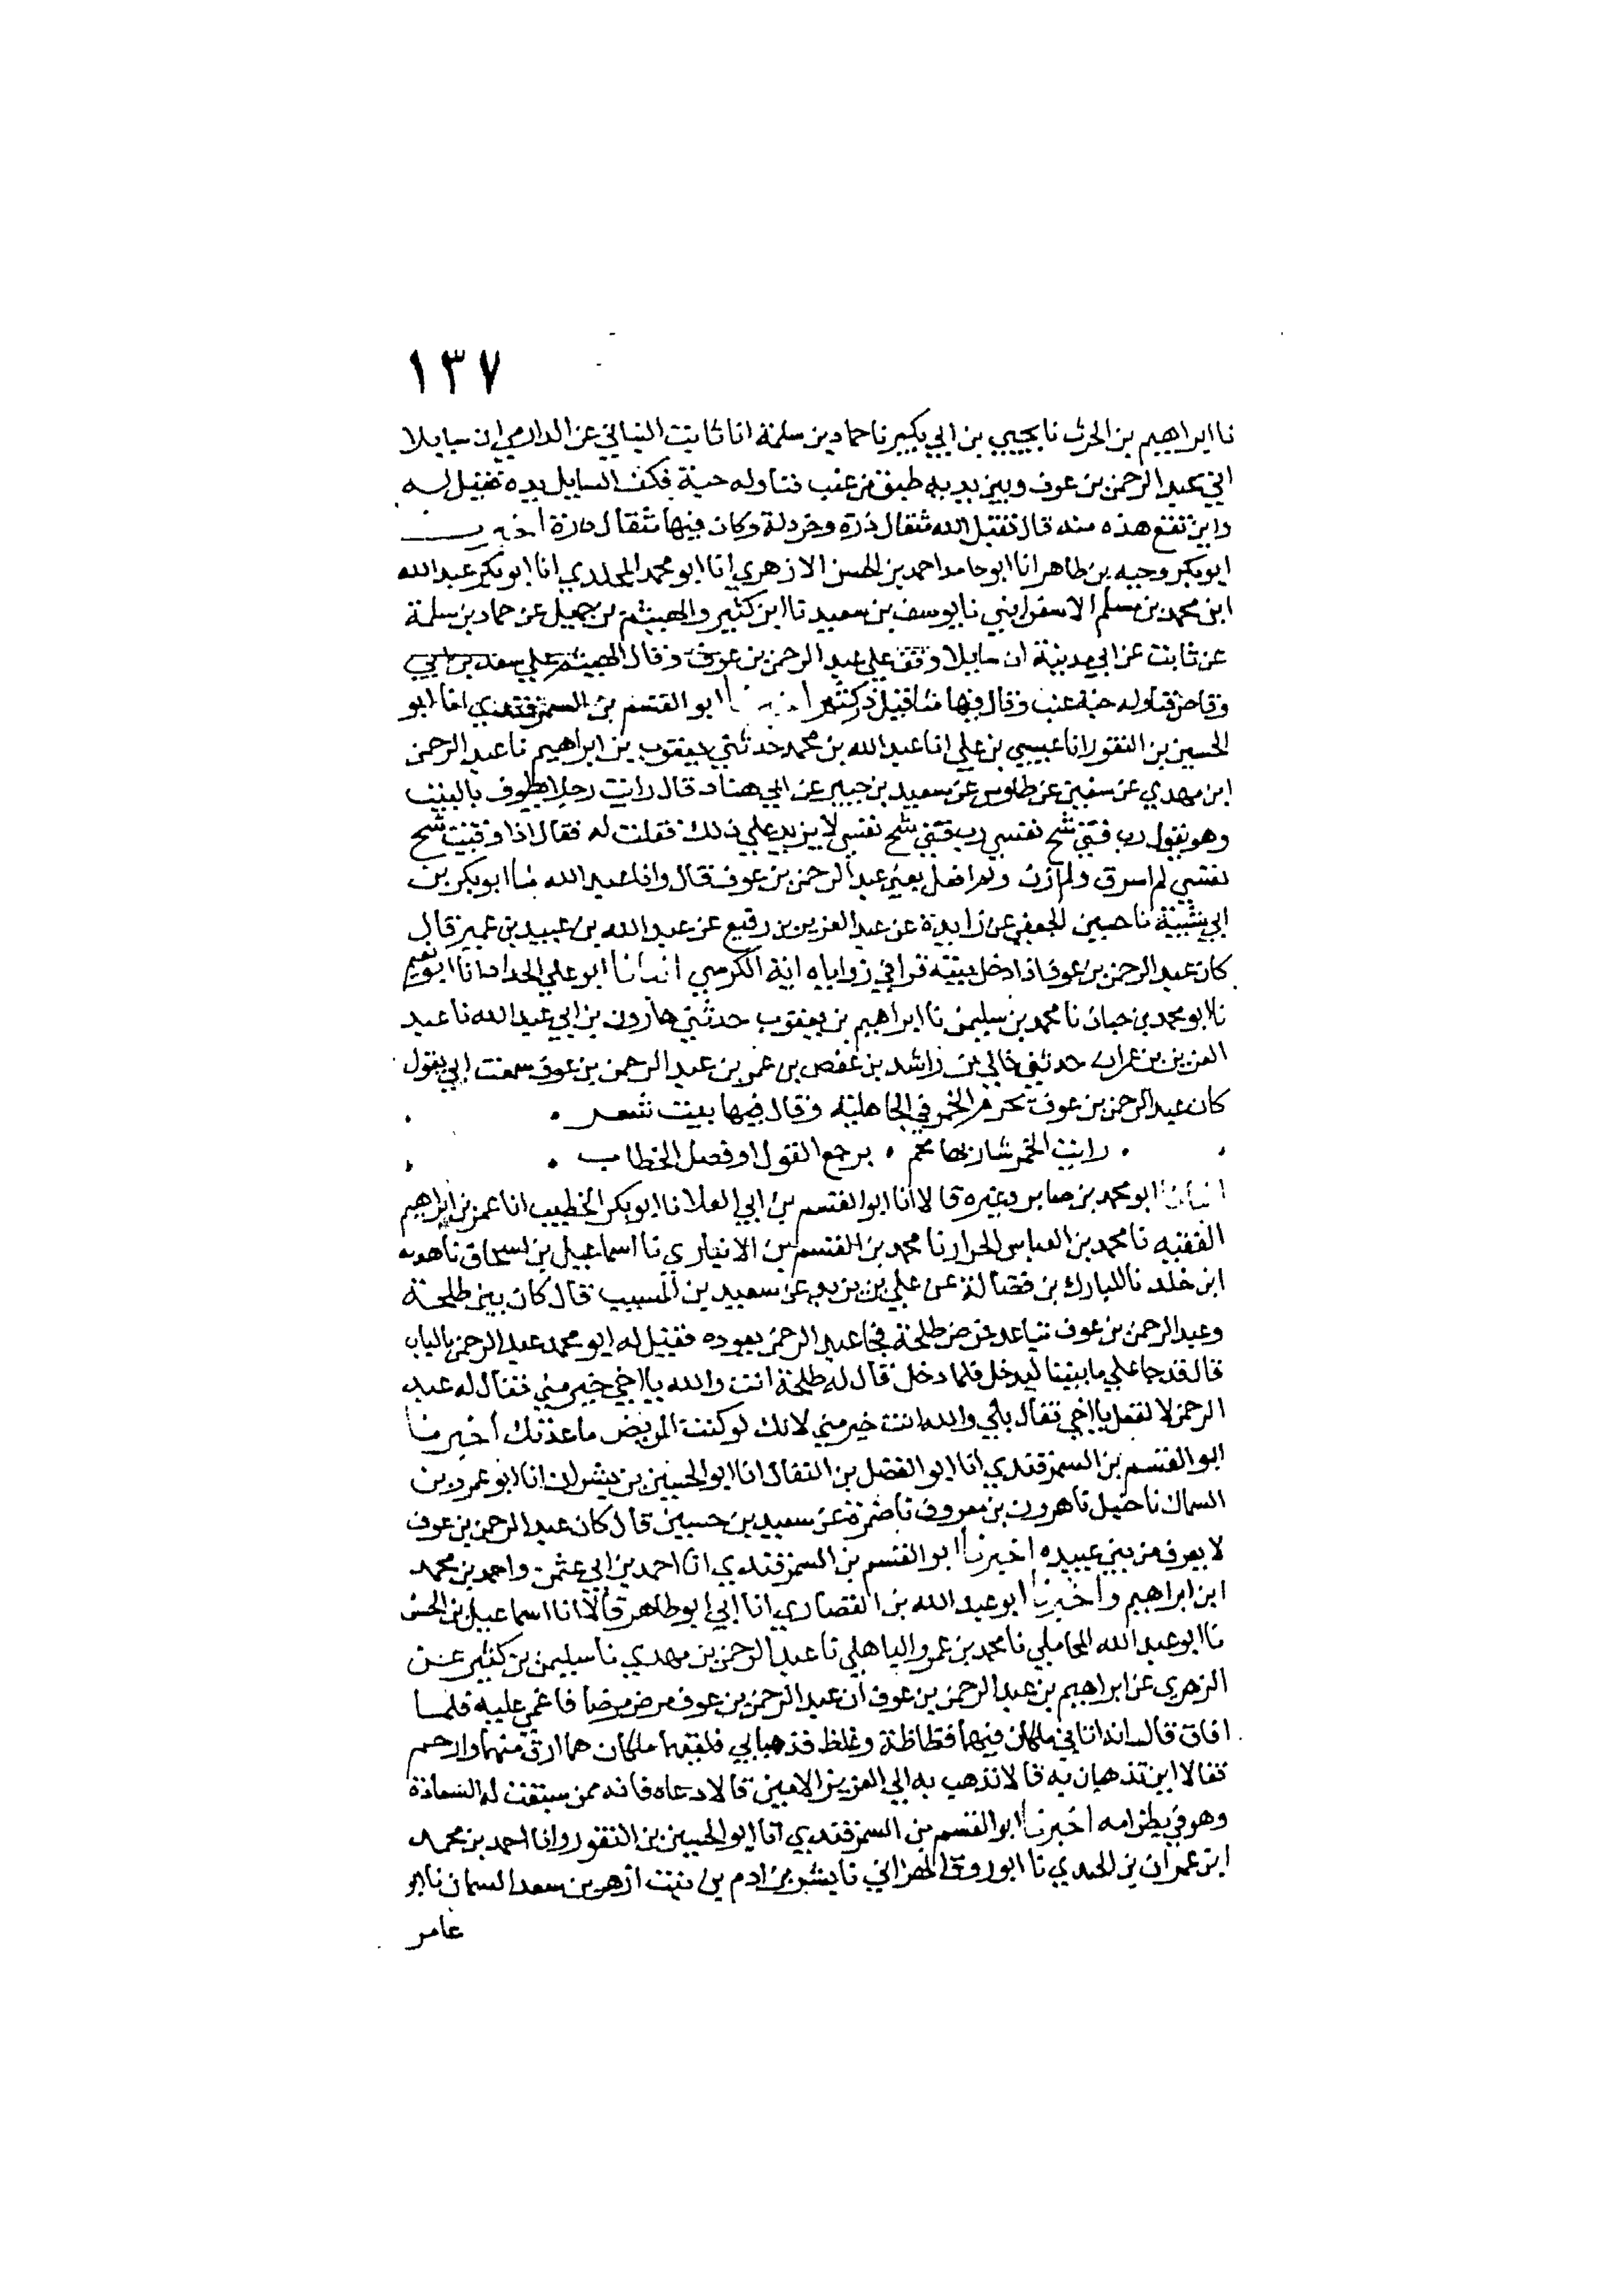 ١٣٧
نا ابراهيم بن الحرث نا يحيى بن ابي بكير نا حماد بن سلمة انا ثابت البناني عن الدارمي ان سايلا
اتي عبد الرحمن بن عوف وبين يديه طبق من عنب فناوله حبة فكف السايل يده فقيل له
واين تقع هذه منه قال تقبل الله مثقال ذرة وخردلة وكان فيها مثقال ذرة اخبرنا
ابو بكر وجيه بن طاهر انا ابو حامد احمد بن الحسن الازهري انا ابو محمد المخلدي انا ابو بكر عبد الله
ابن محمد بن مسلم الاسفرايني نا يوسف بن سعيد نا ابن كثير والهيثم بن جميل عن حماد بن سلمة
عن ثابت عن ابي مدينة ان سايلا وقف علي عبد الرحمن بن عوف وقال الهيثم علي سعد بن ابي
وقاص فناوله حبة عنب وقال فيها مثاقيل ذر كثير اخبرنا ابو القسم بن السمرقندي انا ابو
الحسين بن النقور انا عيسي بن علي انا عبد الله بن محمد حدثني يعقوب بن ابراهيم نا عبد الرحمن
ابن مهدي عن سفين عن طاوس عن سعيد بن جبير عن ابي هناد قال رايت رجلا يطوف بالبيت
وهو يقول رب قني شح نفسي رب قني شح نفسي لا يزيد علي ذلك فقلت له فقال اذا وقيت شح
نفسي لم اسرق ولم ازن ولم افعل يعني عبد الرحمن بن عوف قال وانا عبد الله نا ابو بكر بن
ابي شيبة نا حسين الجعفي عن زايدة عن عبد العزيز بن رفيع عن عبد الله بن عبيد بن عمير قال
كان عبد الرحمن بن عوف اذا دخل بيته قرا في زواياه اية الكرسي انبانا ابو علي الحداد انا ابو نعيم
نا ابو محمد بن حيان نا محمد بن سليمن نا ابراهيم بن يعقوب حدثني هارون بن ابي عبد الله نا عبد
العزيز بن عمران حدثني خالي بن راشد بن حفص بن عمر بن عبد الرحمن بن عوف سمعت ابي يقول
كان عبد الرحمن بن عوف حرم الخمر في الجاهلية وقال فيها بيت شعر
رايت الخمر شاربها يرجع القول او فصل الخطاب
انبانا ابو محمد بن صابر وغيره قالا انا ابو القسم بن ابي العلا نا ابو بكر الخطيب انا عمر بن ابراهيم
الفقيه نا محمد بن العباس الخزاز نا محمد بن القسم بن الانباري نا اسماعيل بن اسحاق نا هدبة
ابن خلد نا المبارك بن فضالة عن علي بن يزيد عن سعيد بن المسيب قال كان بين طلحة
وعبد الرحمن بن عوف تباعد فمرض طلحة فجا عبد الرحمن يعوده فقيل له ابو محمد عبد الرحمن بالباب
قال قد جا علي ما بيننا ليدخل فلما دخل قال له طلحة انت والله يا اخي خير مني فقال له عبد
الرحمن لا تفعل يا اخي فقال بلي والله انت خير مني لانك لو كنت المريض ما عدتك اخبرنا
ابو القسم بن السمرقندي انا ابو الفضل بن البقال انا ابو الحسين بن بشران انا ابو عمرو بن
السماك نا حنبل نا هرون بن معروف نا ضمرة عن سعيد بن حسين قال كان عبد الرحمن بن عوف
لا يعرف من بني عبيده اخبرنا ابو القسم بن السمرقندي انا احمد بن ابي عثمن واحمد بن محمد
ابن ابراهيم واخبرنا ابو عبد الله بن القصاري انا ابي ابو طاهر قالا انا اسماعيل بن الحسن
نا ابو عبد الله المحاملي نا محمد بن عمرو الباهلي نا عبد الرحمن بن مهدي نا سليمن بن كثير عن
الزهري عن ابراهيم بن عبد الرحمن بن عوف ان عبد الرحمن بن عوف مرض مرضا فاغمي عليه فلما
افاق قال انه اتاني ملكان فيهما فظاظة وغلظ فذهبا بي فلقيهما ملكان هما ارق منهما وارحم
فقالا اين تذهبان به قالا نذهب به الي العزيز الامين قالا دعاه فانه ممن سبقت له السعادة
وهو في بطن امه اخبرنا ابو القسم بن السمرقندي انا ابو الحسين بن النقور وانا احمد بن محمد
ابن عمران بن الجندي نا ابو روق الهزاني نا بشر بن ادم بن بنت ازهر بن سعد السمان نا ابو
عامر